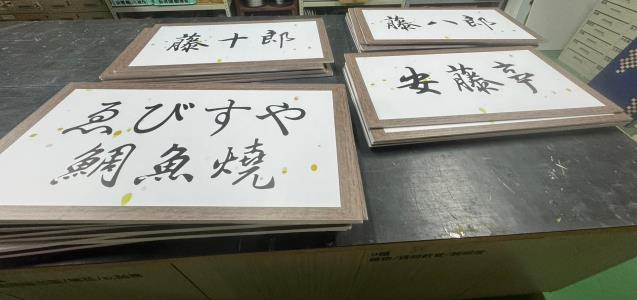 藤十郎
藤八郎
安藤亭
ゑびすや
鯛魚燒